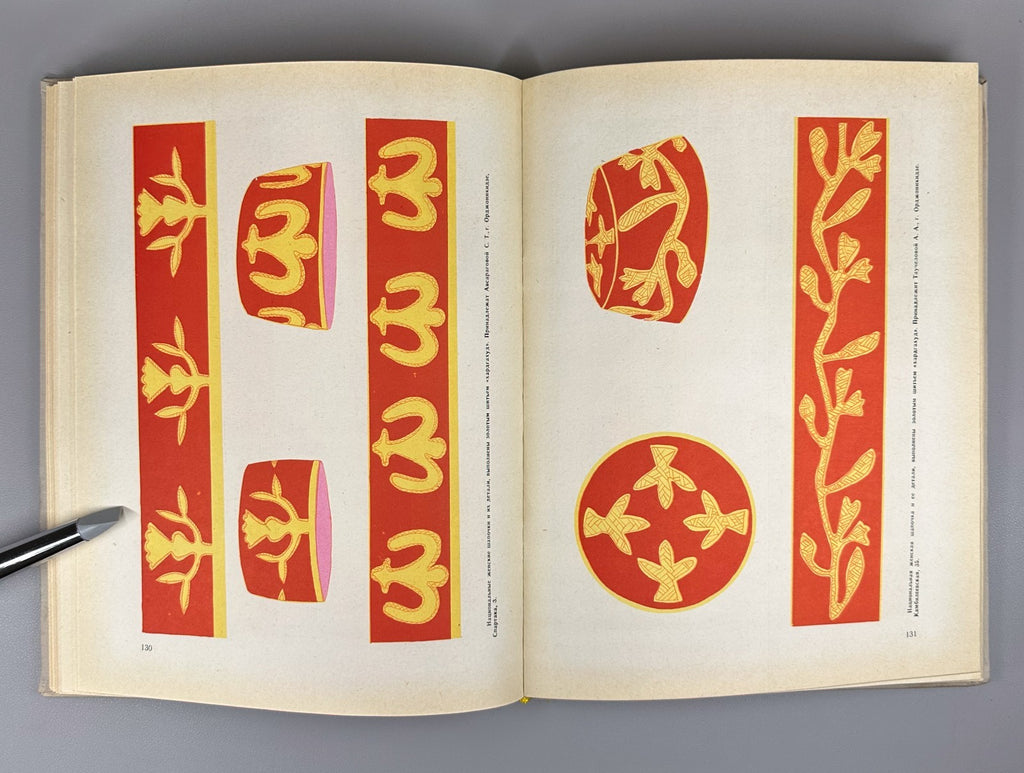 Национальные женские шапочки и их детали, выполнены золотым шитьем «зардæхуд». Принадлежат Авсараговой С. Т., г. Орджоникидзе,
Спартака, 3.
130
Национальная женская шапочка и ее детали, выполнены золотым шитьем Принадлежит А. А., г. Орджоникидзе,
Камбилеевская, 55.
131